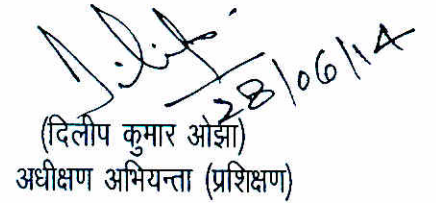 28/06/14
(दिलीप कुमार ओझा)
अधीक्षण अभियन्ता (प्रशिक्षण)